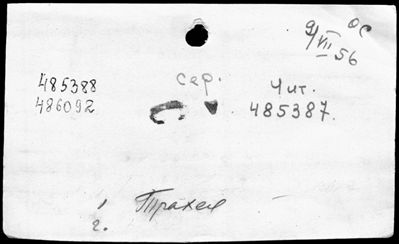 9/VII 56
ос
485388
486092
сер.
Чит.
485387.
1. Трахея
2.